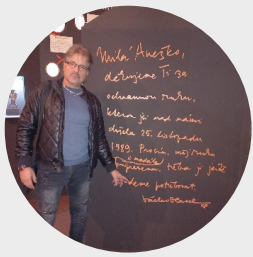 Milá Anežko,
děkujeme Ti za
ochrannou ruku,
která je nad námi
držela 25. listopadu
1989. Prosím, měj ruku
a nadále
připravenu. třeba ji ještě
budeme potřebovat.
Václav Havel